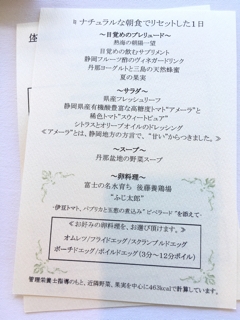 8 ナチュラルな朝食でリセットした1日
～目覚めのプレリュード～
熱海の朝陽一望
目覚めの飲むサプリメント
静岡フルーツ酢のヴィネガードリンク
丹那ヨーグルトと三島の天然蜂蜜
夏の果実
～サラダ～
県産フレッシュリーフ
静岡県産有機酸豊富な高糖度トマト“アメーラ”と
橘色トマト“スウィートピュア”
シトラスとオリーブオイルのドレッシング
≪アメーラ≫とは、静岡地方の方言で、“甘い”からつきました。≫
～スープ～
丹那盆地の野菜スープ
～卵料理～
富士の名水育ち 後藤養鶏場
“ふじ太郎”
-伊豆トマト、パプリカと玉葱の煮込み“ピペラード”を添えて-
≪お好みの卵料理を、お選び頂けます。≫
オムレツ/フライドエッグ/スクランブルエッグ
ポーチドエッグ/ボイルドエッグ(3分～12分ボイル)
管理栄養士指導のもと、近隣野菜、果実を中心に463kcalで計算しています。